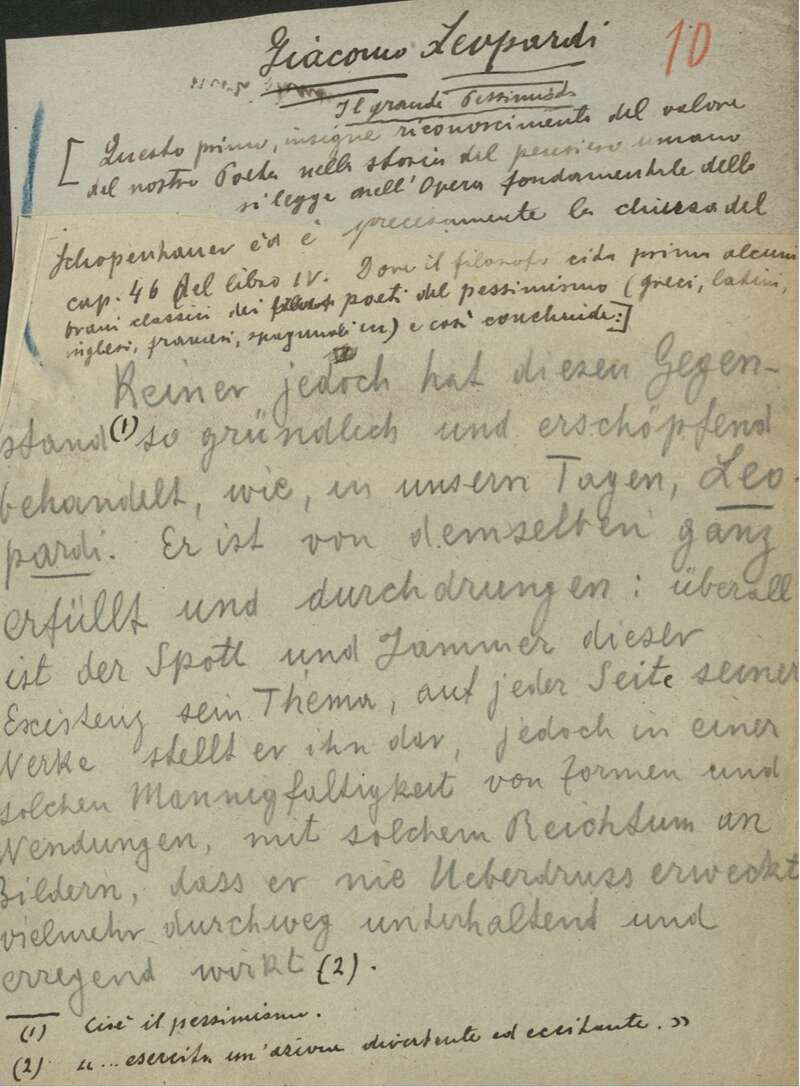 Giacomo Leopardi
10
Il grande Pessimista
[Questo primo, insigne riconoscimento del valore
del nostro Poeta nella storia del pensiero umano
si legge nell'Opera fondamentale dello
Schopenhauer ed è precisamente la chiusa del
cap. 46 del libro IV. Dove il filosofo cita prima alcuni
brani classici dei poeti del pessimismo (greci, latini,
inglesi, francesi, spagnuoli) e così conchiude:]
Keiner jedoch hat diesen Gegen-
stand (1) so gründlich und erschöpfend
behandelt, wie, in unsern Tagen, Leo-
pardi. Er ist von demselben ganz
erfüllt und durchdrungen: überall
ist der Spott und Jammer dieser
Existenz sein Thema, auf jeder Seite seiner
Werke stellt er ihn dar, jedoch in einer
solchen Mannigfaltigkeit von Formen und
Wendungen, mit solchem Reichtum an
Bildern, dass er nie Ueberdruss erweckt
vielmehr durchweg unterhaltend und
erregend wirkt (2).
(1) Cioè il pessimismo.
(2) "... esercita un'azione divertente ed eccitante."